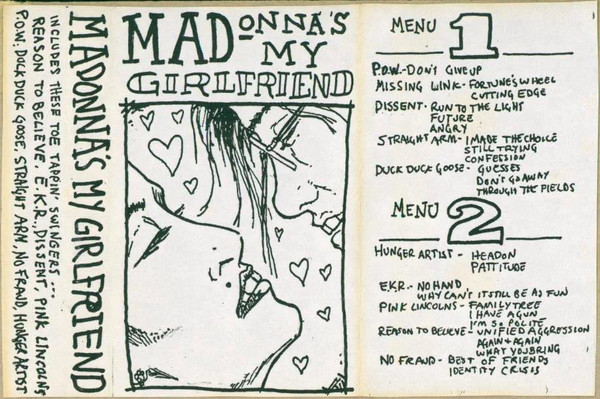 INCLUDES THESE TOE TAPPIN' SWINGERS...
REASON TO BELIEVE. E.K.R., DISSENT, PINK LINCOLNS
P.O.W., DUCK DUCK GOOSE, STRAIGHT ARM, NO FRAUD, HUNGER ARTIST
MADONNA'S MY GIRLFRIEND
MADONNA'S
MY
GIRLFRIEND
MENU 1
P.O.W.- DON'T GIVE UP
MISSING LINK- FORTUNE'S WHEEL
CUTTING EDGE
DISSENT- RUN TO THE LIGHT
FUTURE
ANGRY
STRAIGHT ARM- I MADE THE CHOICE
STILL TRYING
CONFESSION
DUCK DUCK GOOSE- GUESSES
DON'T GO AWAY
THROUGH THE FIELDS
MENU 2
HUNGER ARTIST - HEADON
PATTITUDE
EKR- NO HAND
WHY CAN'T IT STILL BE AS FUN
PINK LINCOLNS- FAMILY TREE
I HAVE A GUN
I'M SO POLITE
REASON TO BELIEVE- UNIFIED AGGRESSION
AGAIN & AGAIN
WHAT YOU BRING
NO FRAUD- BEST OF FRIENDS
IDENTITY CRISIS